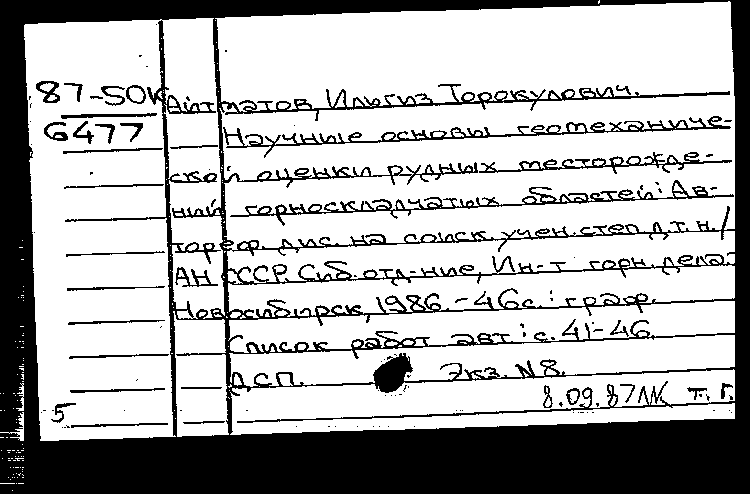 87-50к Айтматов, Ильгиз Торокулович.
6477 Научные основы геомеханиче-
ской оценки рудных месторожде-
ний горноскладчатых областей: Ав-
тореф. дис. на соиск. учен. степ. д.т.н./
АН СССР. Сиб. отд-ние, Ин-т горн. дела.
Новосибирск, 1986.-46с.: граф.
Список работ авт.: с. 41-46.
ДСП. Экз. N8.
5 8.09.87 т. г.